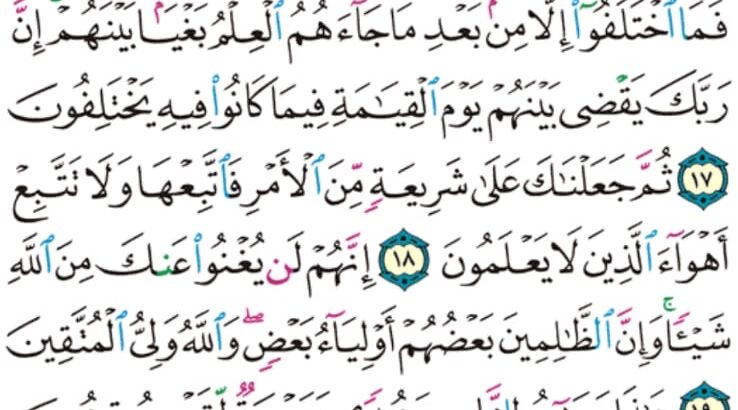 فَمَا ٱخْتَلَفُوٓا۟ إِلَّا مِنۢ بَعْدِ مَا جَآءَهُمُ ٱلْعِلْمُ بَغْيًۢا بَيْنَهُمْ إِنَّ
رَبَّكَ يَقْضِى بَيْنَهُمْ يَوْمَ ٱلْقِيَٰمَةِ فِيمَا كَانُوا۟ فِيهِ يَخْتَلِفُونَ
١٧ ثُمَّ جَعَلْنَٰكَ عَلَىٰ شَرِيعَةٍ مِّنَ ٱلْأَمْرِ فَٱتَّبِعْهَا وَلَا تَتَّبِعْ
أَهْوَآءَ ٱلَّذِينَ لَا يَعْلَمُونَ ١٨ إِنَّهُمْ لَن يُغْنُوا۟ عَنكَ مِنَ ٱللَّهِ
شَيْـًٔا ۚ وَإِنَّ ٱلظَّٰلِمِينَ بَعْضُهُمْ أَوْلِيَآءُ بَعْضٍ ۖ وَٱللَّهُ وَلِىُّ ٱلْمُتَّقِينَ
١٩